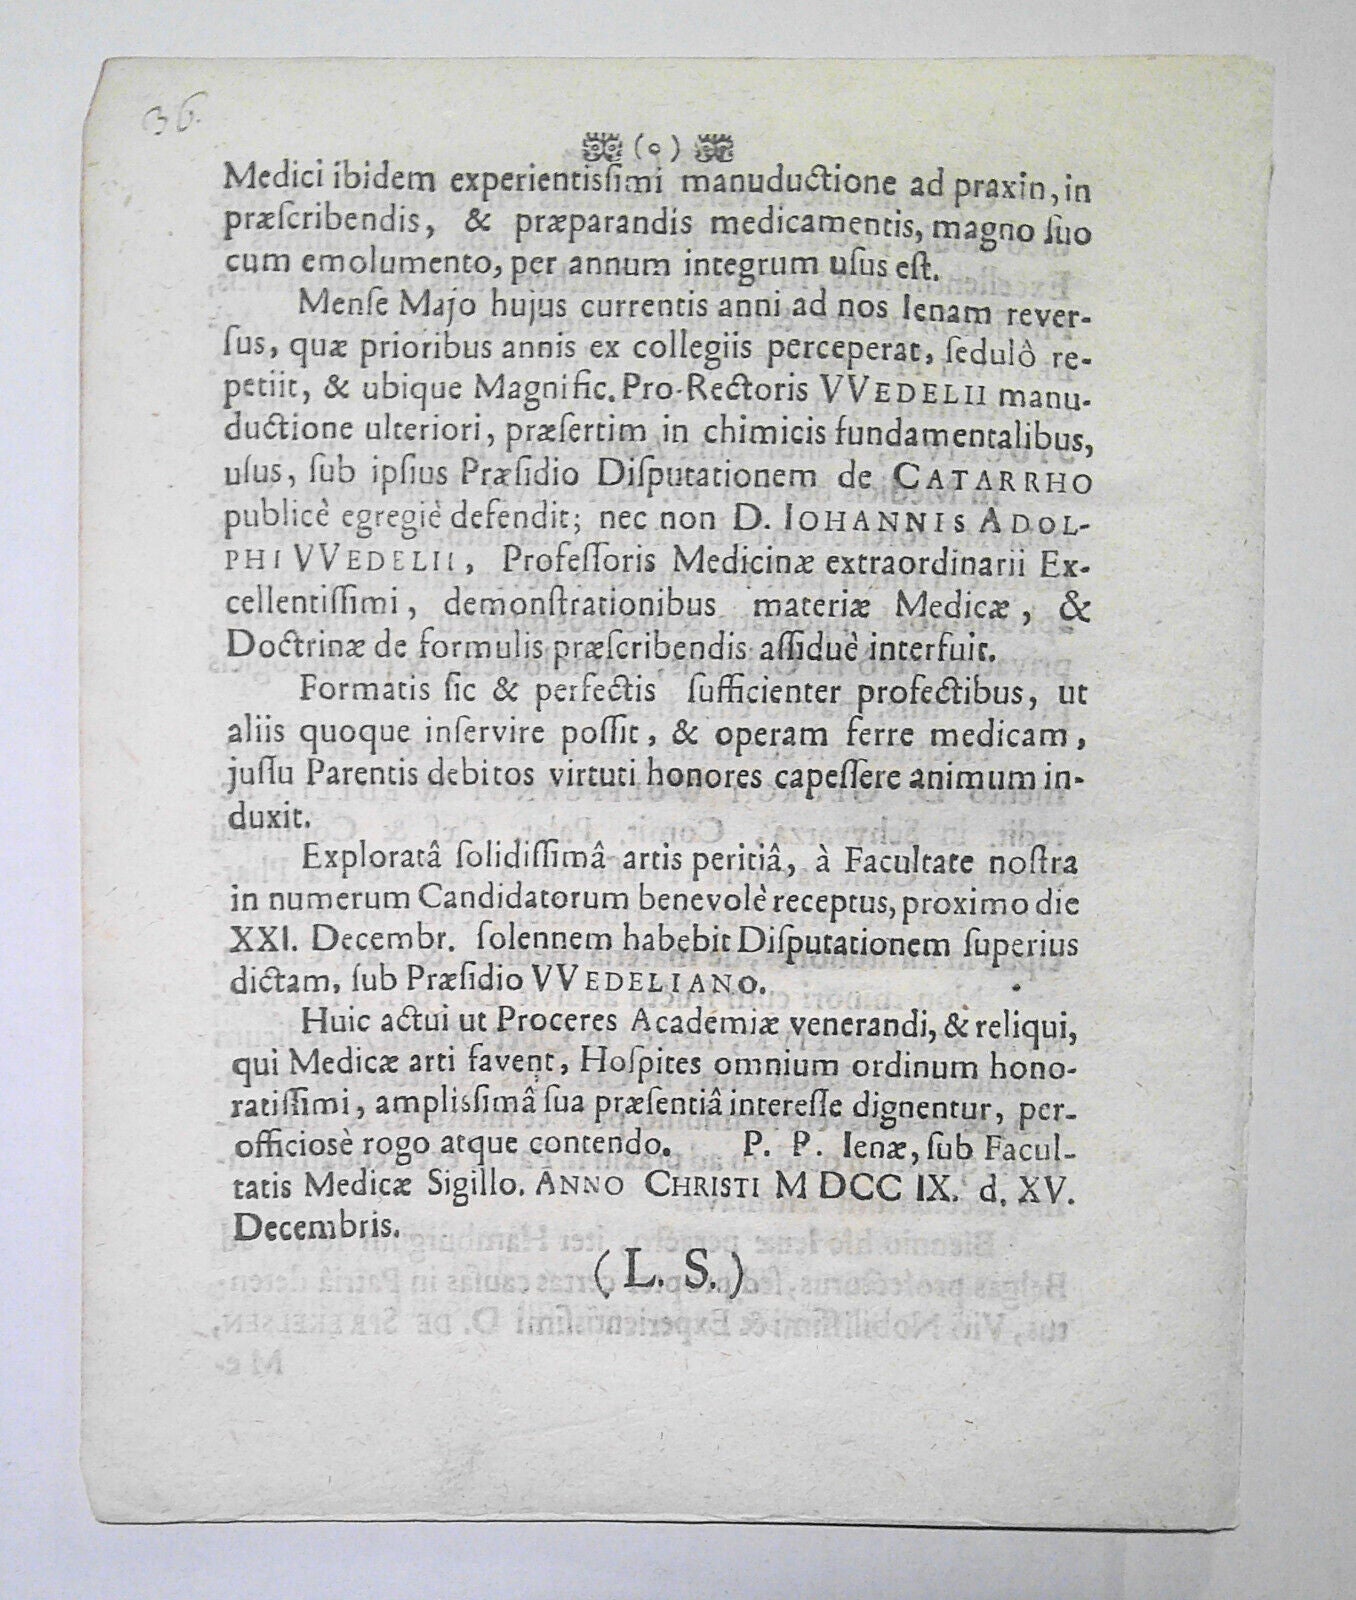 36.
(o)
Medici ibidem experientisſimi manuductione ad praxin, in
præſcribendis, & præparandis medicamentis, magno ſuo
cum emolumento, per annum integrum uſus eſt.
Menſe Majo hujus currentis anni ad nos Ienam rever-
ſus, quæ prioribus annis ex collegiis perceperat, ſedulò re-
petiit, & ubique Magnific. Pro-Rectoris VVEDELII manu-
ductione ulteriori, præſertim in chimicis fundamentalibus,
uſus, ſub ipſius Præſidio Diſputationem de CATARRHO
publicè egregiè defendit; nec non D. IOHANNIS ADOL-
PHI VVEDELII, Profeſſoris Medicinæ extraordinarii Ex-
cellentiſſimi, demonſtrationibus materiæ Medicæ, &
Doctrinæ de formulis præſcribendis aſſiduè interfuit.
Formatis ſic & perfectis ſufficienter profectibus, ut
aliis quoque inſervire poſſit, & operam ferre medicam,
juſſu Parentis debitos virtuti honores capeſſere animum in-
duxit.
Exploratâ ſolidiſſimâ artis peritiâ, à Facultate noſtra
in numerum Candidatorum benevolè receptus, proximo die
XXI. Decembr. ſolennem habebit Diſputationem ſuperius
dictam, ſub Præſidio VVEDELIANO.
Huic actui ut Proceres Academiæ venerandi, & reliqui,
qui Medicæ arti favent, Hoſpites omnium ordinum hono-
ratiſſimi, ampliſsimâ ſua præſentiâ intereſſe dignentur, per-
officiosè rogo atque contendo. P. P. Ienæ, ſub Facul-
tatis Medicæ Sigillo. ANNO CHRISTI M DCC IX. d. XV.
Decembris.
(L. S.)